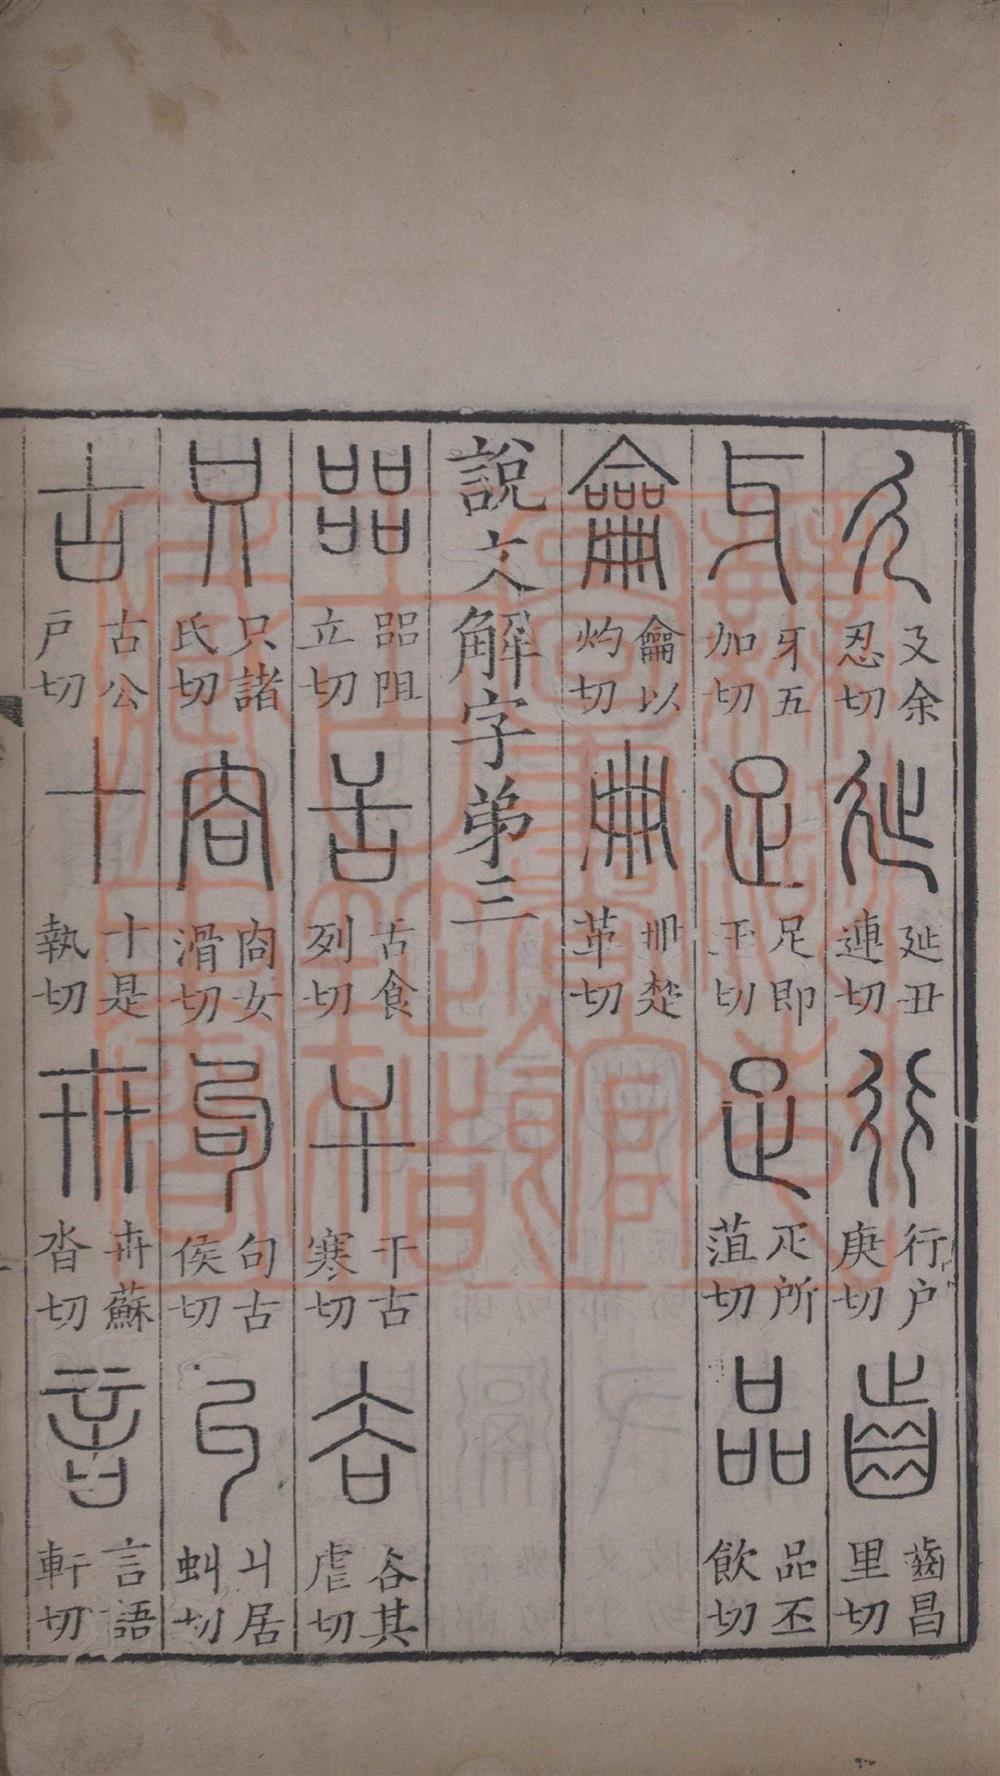 廴 廴余忍切 㢟 㢟丑連切 行 行户庚切 齒 齒昌里切
牙 牙五加切 足 足即玉切 疋 疋所菹切 品 品丕飲切
龠 龠以灼切 冊 冊楚革切
說文解字弟三
㗊 㗊阻立切 舌 舌食列切 干 干古寒切 谷 谷其虐切
只 只諸氏切 㕯 㕯女滑切 句 句古侯切 丩 丩居虯切
古 古公戶切 十 十是執切 卅 卅蘇沓切 言 言語軒切